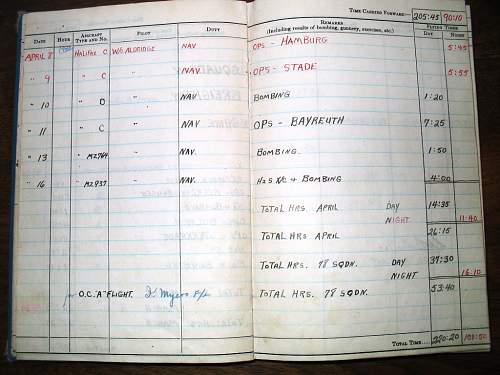 TIME CARRIED FORWARD:— 205:45 90:10
DATE HOUR AIRCRAFT TYPE AND NO. PILOT DUTY REMARKS (Including results of bombing, gunnery, exercises, etc.) FLYING TIMES DAY NIGHT
APRIL 8 HALIFAX C W/O ALDRIDGE NAV OPS - HAMBURG 5:45
" 9 " C " NAV. OPS - STADE 5:55
" 10 " D " NAV. BOMBING 1:20
" 11 " C " NAV. OPS - BAYREUTH 7:25
" 13 " MZ764 " NAV. BOMBING. 1:50
" 16 " MZ937 " NAV. H2S X/C & BOMBING 4:00
TOTAL HRS. APRIL DAY 14:35
NIGHT 11:40
TOTAL HRS APRIL 26:15
TOTAL HRS. 78 SQDN. DAY 37:30
NIGHT 16:10
for O.C. "A" FLIGHT. F/L TOTAL HRS. 78 SQDN. 53:40
TOTAL TIME.... 220:20 101:50